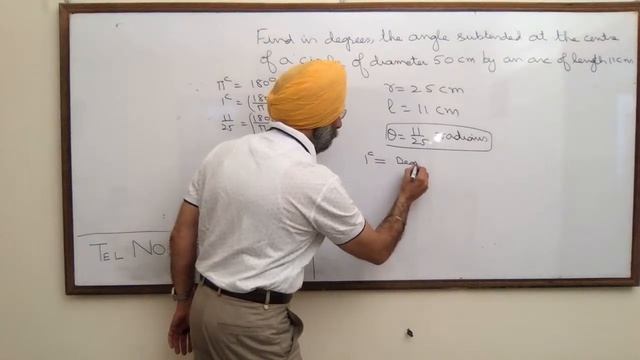 Find in degrees, the angle subtended at the centre
of a circle of diameter 50 cm by an arc of length 11 cm
πᶜ = 180°
1ᶜ = (180
11/25 = (180/π
r = 25 cm
l = 11 cm
θ = 11/25 radians
1ᶜ = Deg
TEL NO